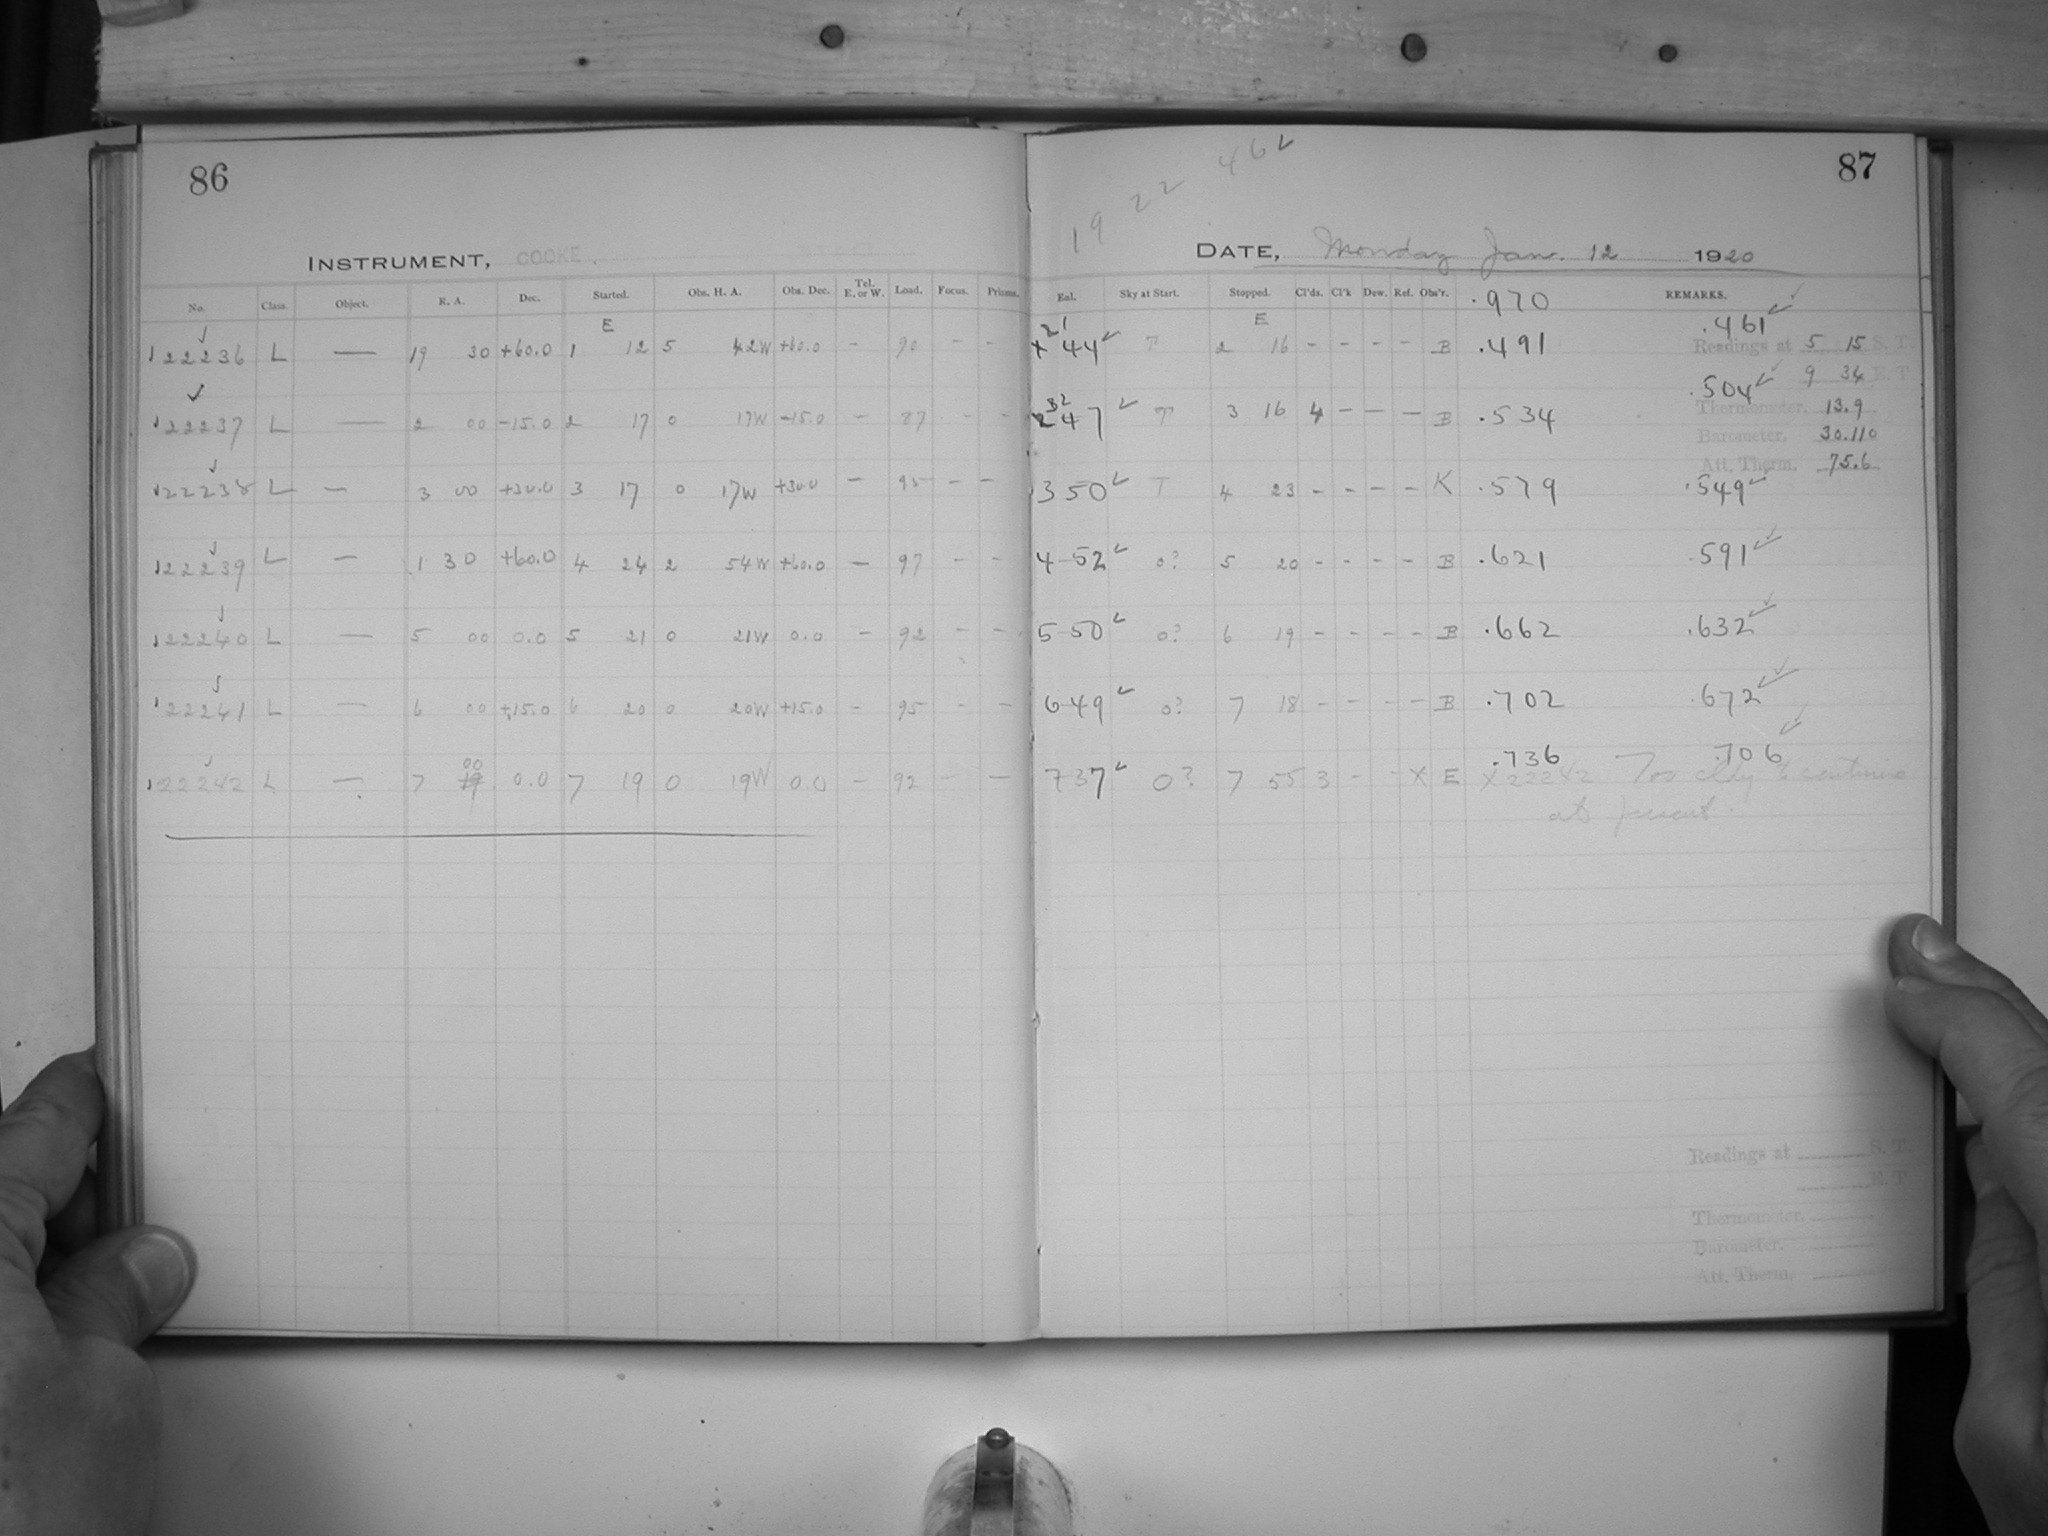 86
INSTRUMENT, COOKE.
No. Class. Object. R. A. Dec. Started. Obs. H. A. Obs. Dec. Tel. E. or W. Load. Focus. Prisms.
E
22236 L — 19 30 +60.0 1 12 5 42W +60.0 - 90 - -
22237 L — 2 00 -15.0 2 17 0 17W -15.0 - 87 - -
22238 L — 3 00 +30.0 3 17 0 17W +30.0 - 95 - -
22239 L — 1 30 +60.0 4 24 2 54W +60.0 - 97 - -
22240 L — 5 00 0.0 5 21 0 21W 0.0 - 92 - -
22241 L — 6 00 +15.0 6 20 0 20W +15.0 - 95 - -
00
22242 L — 7 19 0.0 7 19 0 19W 0.0 - 92 - -
87
19 22 46
DATE, Monday Jan. 12 1920
Eal. Sky at Start. Stopped. Cl'ds. Cl'k Dew. Ref. Obs'r. .970 REMARKS.
E .461
44 T 2 16 - - - - B .491
Readings at 5 15 S. T.
9 34 E. T.
.504
47 T 3 16 4 - - - B .534
Thermometer. 13.9
Barometer. 30.110
Att. Therm. 75.6
3 50 T 4 23 - - - - K .579 .549
4 52 0? 5 20 - - - - B .621 .591
5 50 0? 6 19 - - - - B .662 .632
6 49 0? 7 18 - - - - B .702 .672
.736 .706
7 37 0? 7 55 3 - - X E X22242 Too cldy to continue
at present.
Readings at S. T.
E. T.
Thermometer.
Barometer.
Att. Therm.